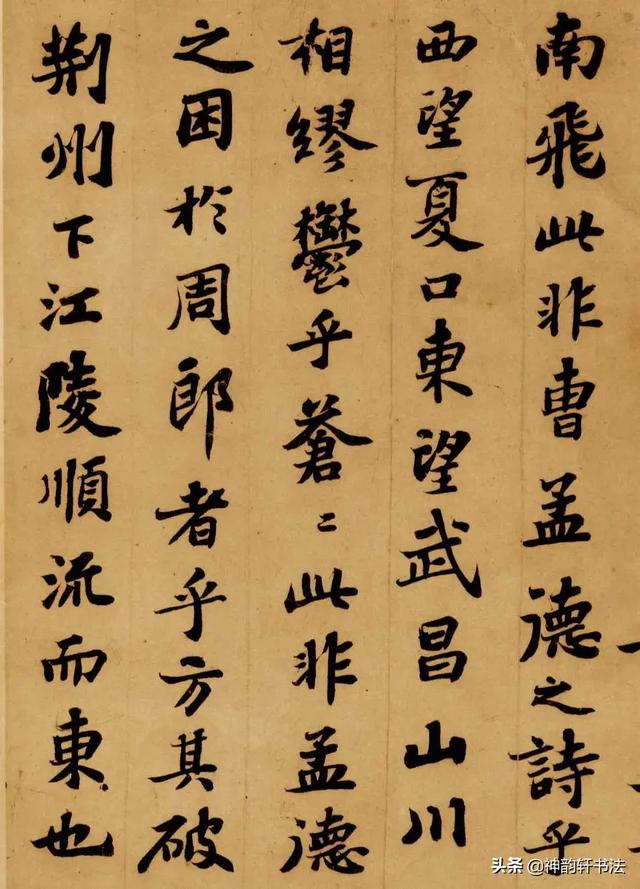 南飛此非曹孟德之詩乎
西望夏口東望武昌山川
相繆鬱乎蒼〻此非孟德
之困於周郎者乎方其破
荊州下江陵順流而東也
头条 @神韵轩书法